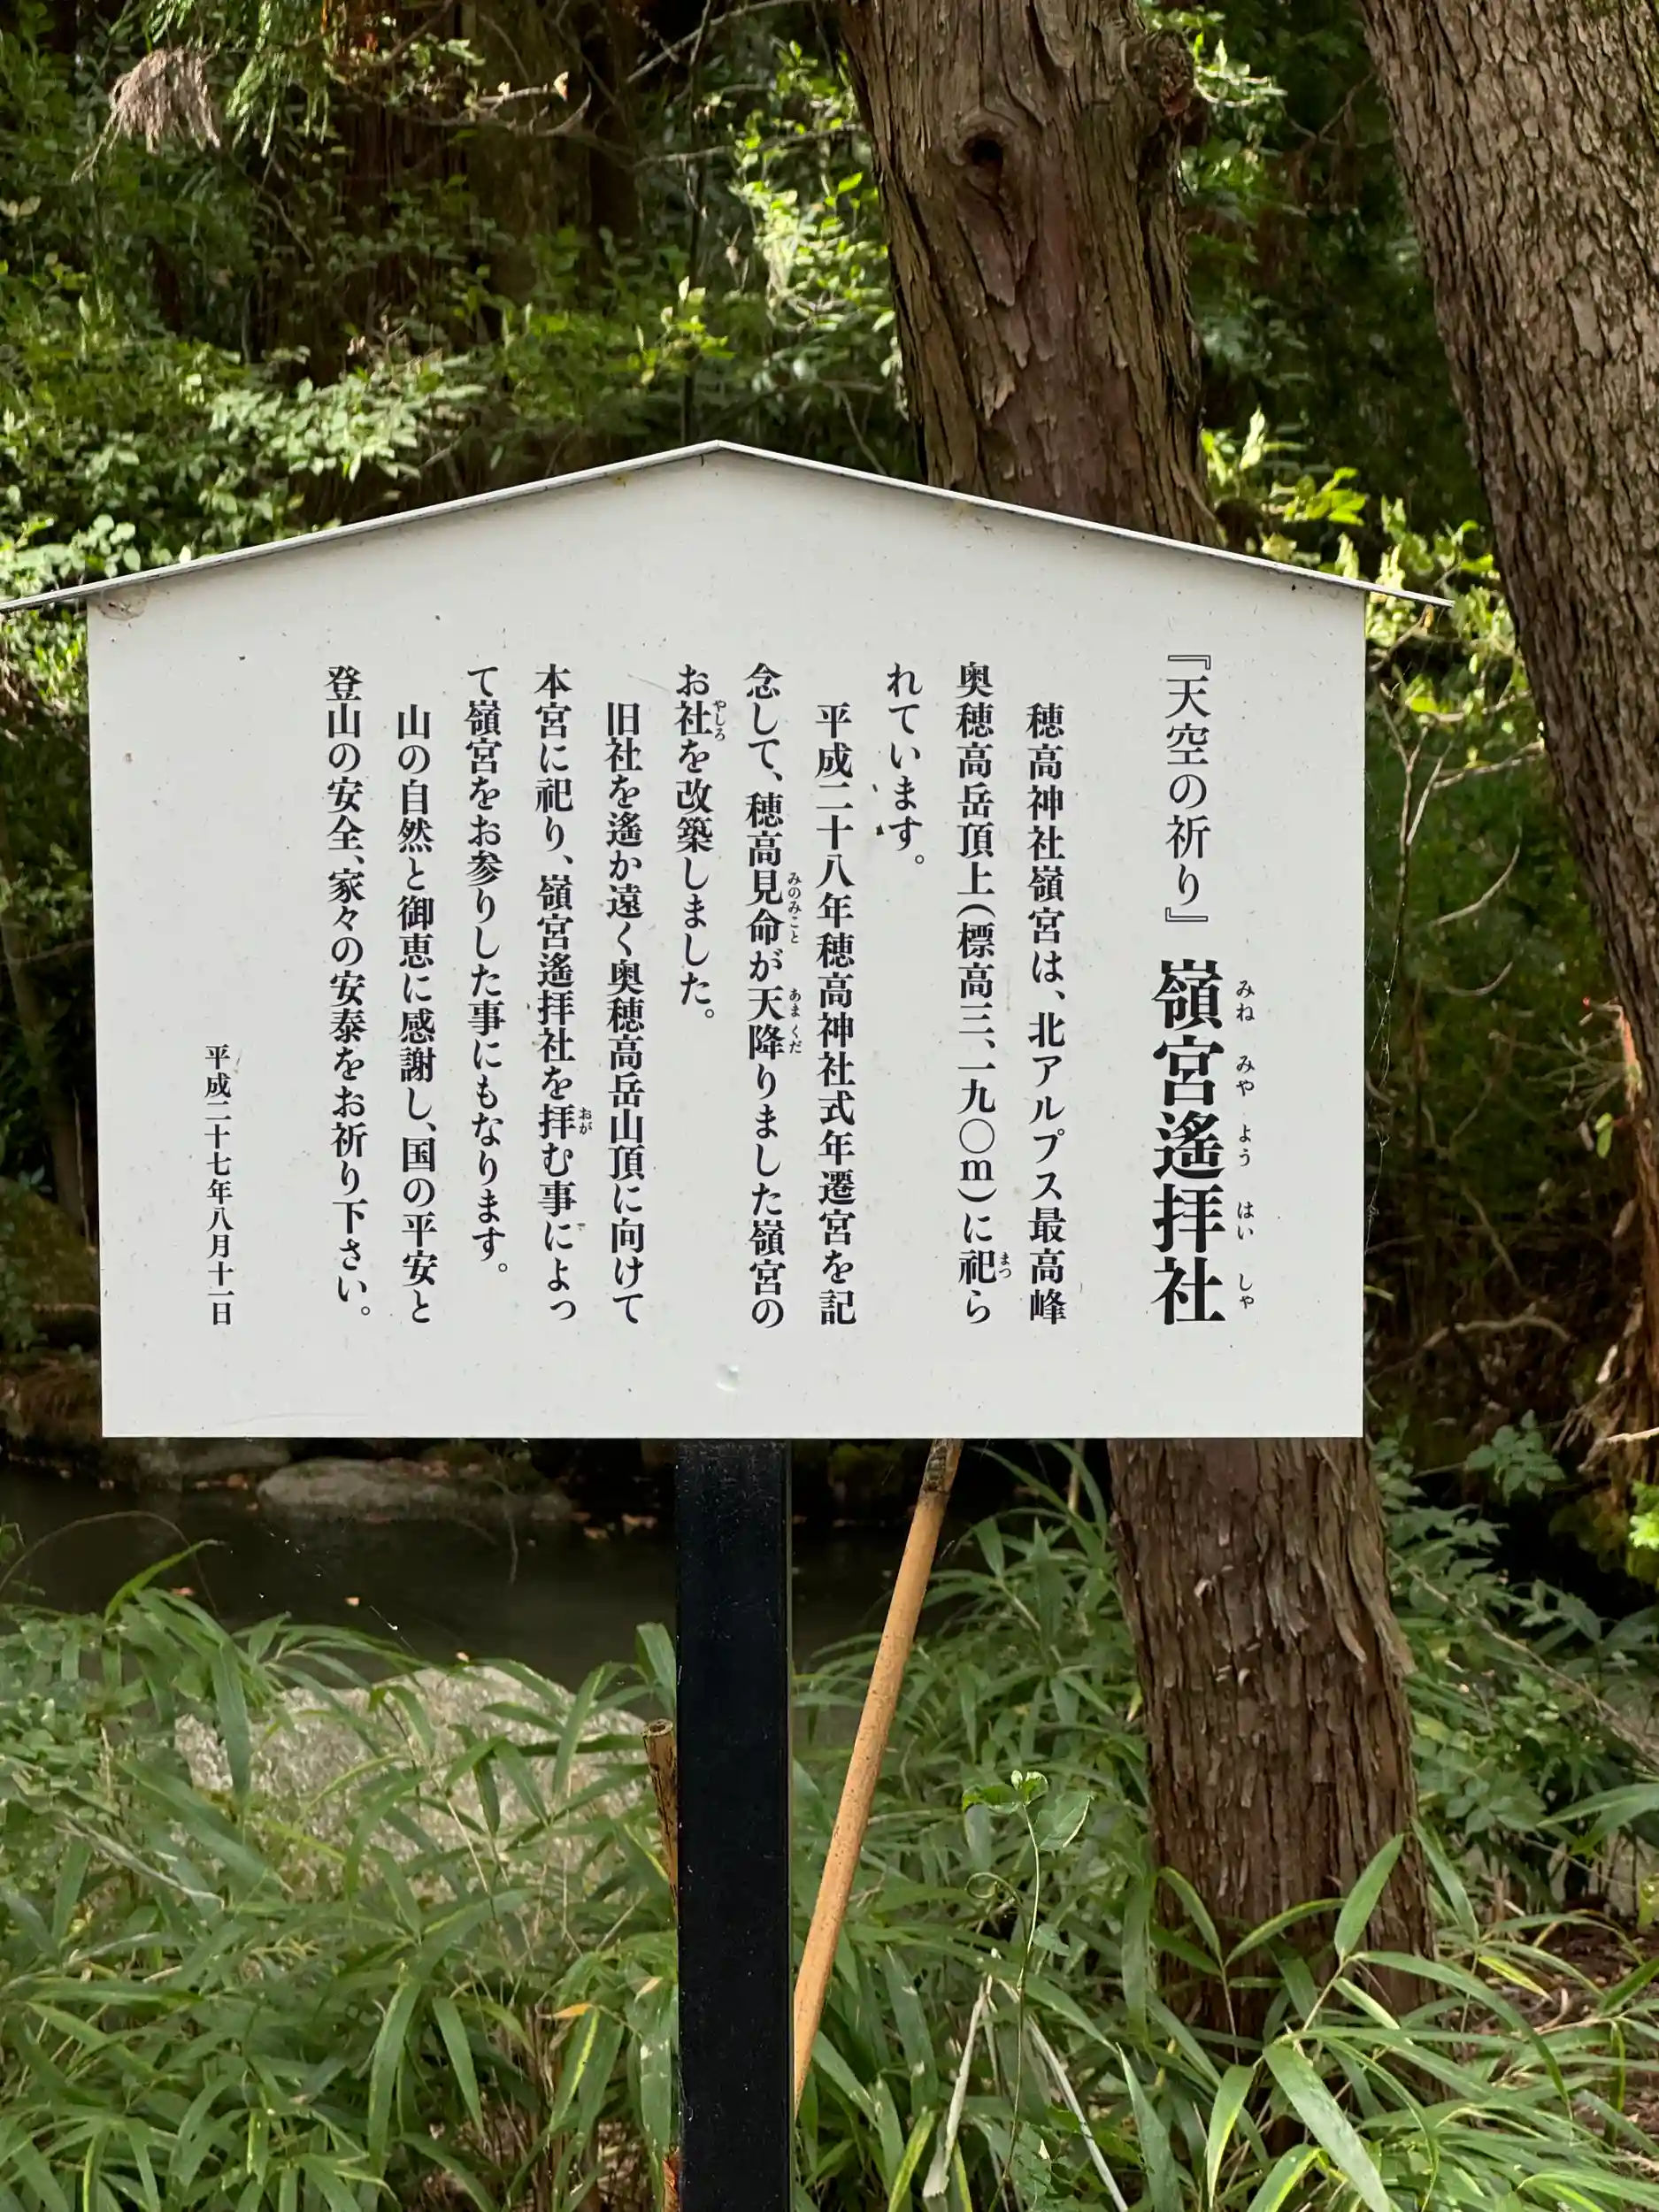 『天空の祈り』 嶺宮遙拝社
みね みや よう はい しゃ
穂高神社嶺宮は、北アルプス最高峰
奥穂高岳頂上(標高三、一九〇m)に祀ら
まつ
れています。
平成二十八年穂高神社式年遷宮を記
念して、穂高見命が天降りました嶺宮の
みのみこと あまくだ
お社を改築しました。
やしろ
旧社を遙か遠く奥穂高岳山頂に向けて
本宮に祀り、嶺宮遙拝社を拝む事によっ
おが
て嶺宮をお参りした事にもなります。
山の自然と御恵に感謝し、国の平安と
登山の安全、家々の安泰をお祈り下さい。
平成二十七年八月十一日